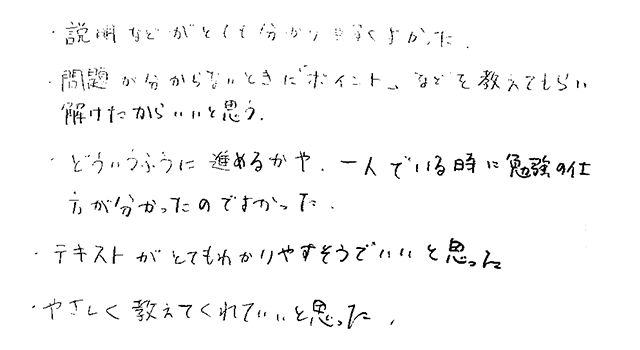 ・説明などがとても分かりやすくよかった.
・問題が分からないときに「ポイント」などを教えてもらい
解けたからいいと思う.
・どういうふうに進めるかや、一人でいる時に勉強の仕
方が分かったのでよかった.
・テキストがとてもわかりやすそうでいいと思った
・やさしく教えてくれていいと思った.